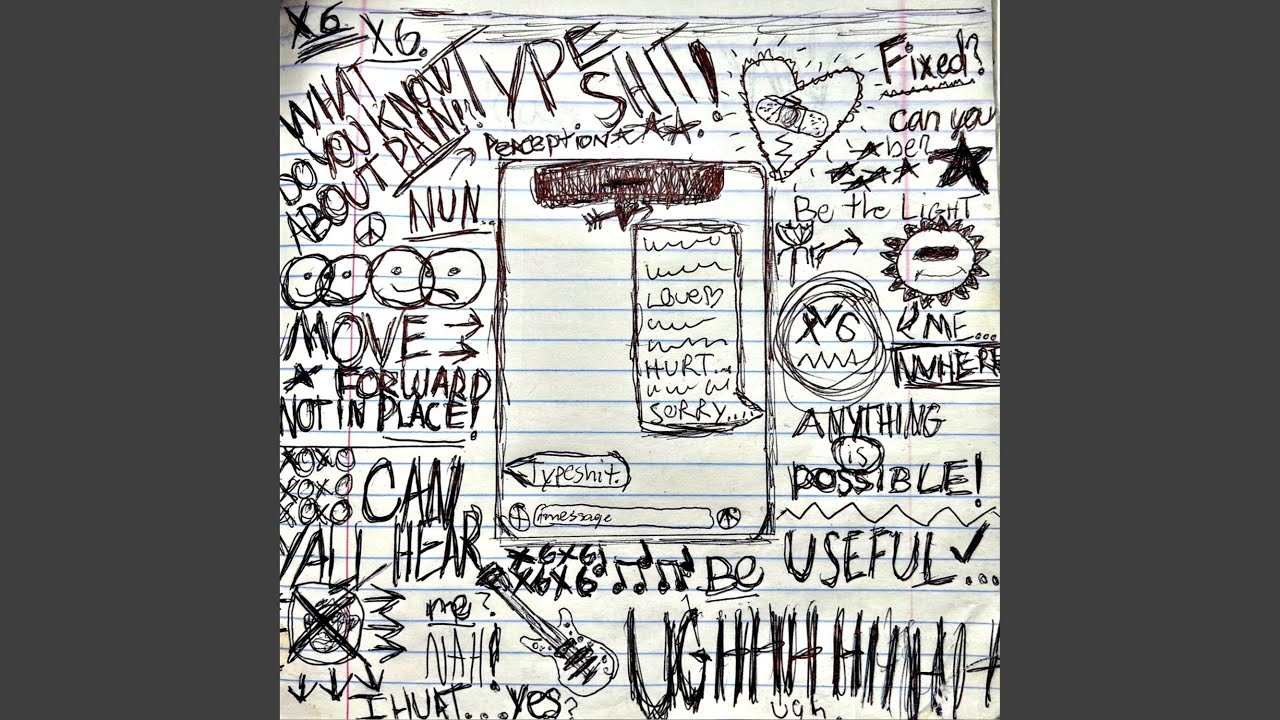 X6 X6.
WHAT
DO YOU KNOW
ABOUT DAMN!!
TYPE
SHIT!
PERCEPTION
NUN
MOVE
FORWARD
NOT IN PLACE!
XOXO
XOXO
XOXO
CAN
YALL HEAR
me?
NAH!
I HURT...yes?
LOVE
HURT...
SORRY....
Typeshit.
imessage
X6X6!
X6X6
Fixed?
can you
Be the LIGHT
X6
ME...
ANYTHING
is
POSSIBLE!
BE USEFUL...
UGHHHHHHHH
ugh.